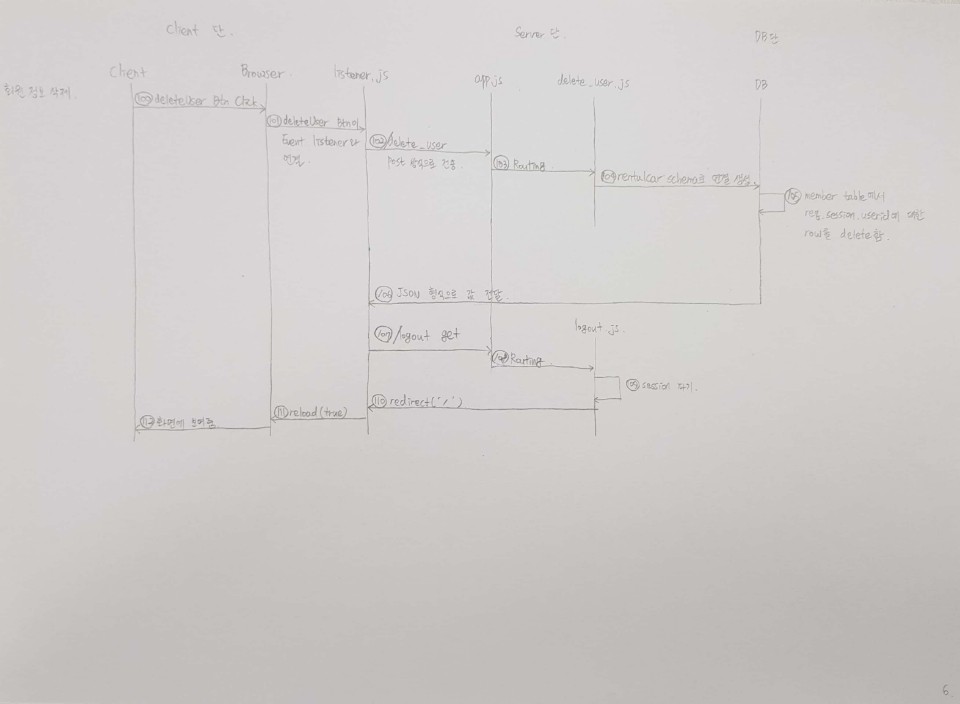 Client 단.
Server 단.
DB단
Client
Browser.
listener.js
app.js
delete_user.js
DB
회원 정보 삭제.
100 deleteUser Btn Click
101 deleteUser Btn이
Event listener와
연결.
102 /delete_user
post 방식으로 전송.
103 Routing
104 rentalcar schema로 연결 생성.
105 member table에서
req.session.userid에 대한
row를 delete함.
106 JSON 형식으로 값 전달.
logout.js.
107 /logout get
108 Routing
109 session 파기.
110 redirect('/')
111 reload(true)
112 화면에 보여줌
6